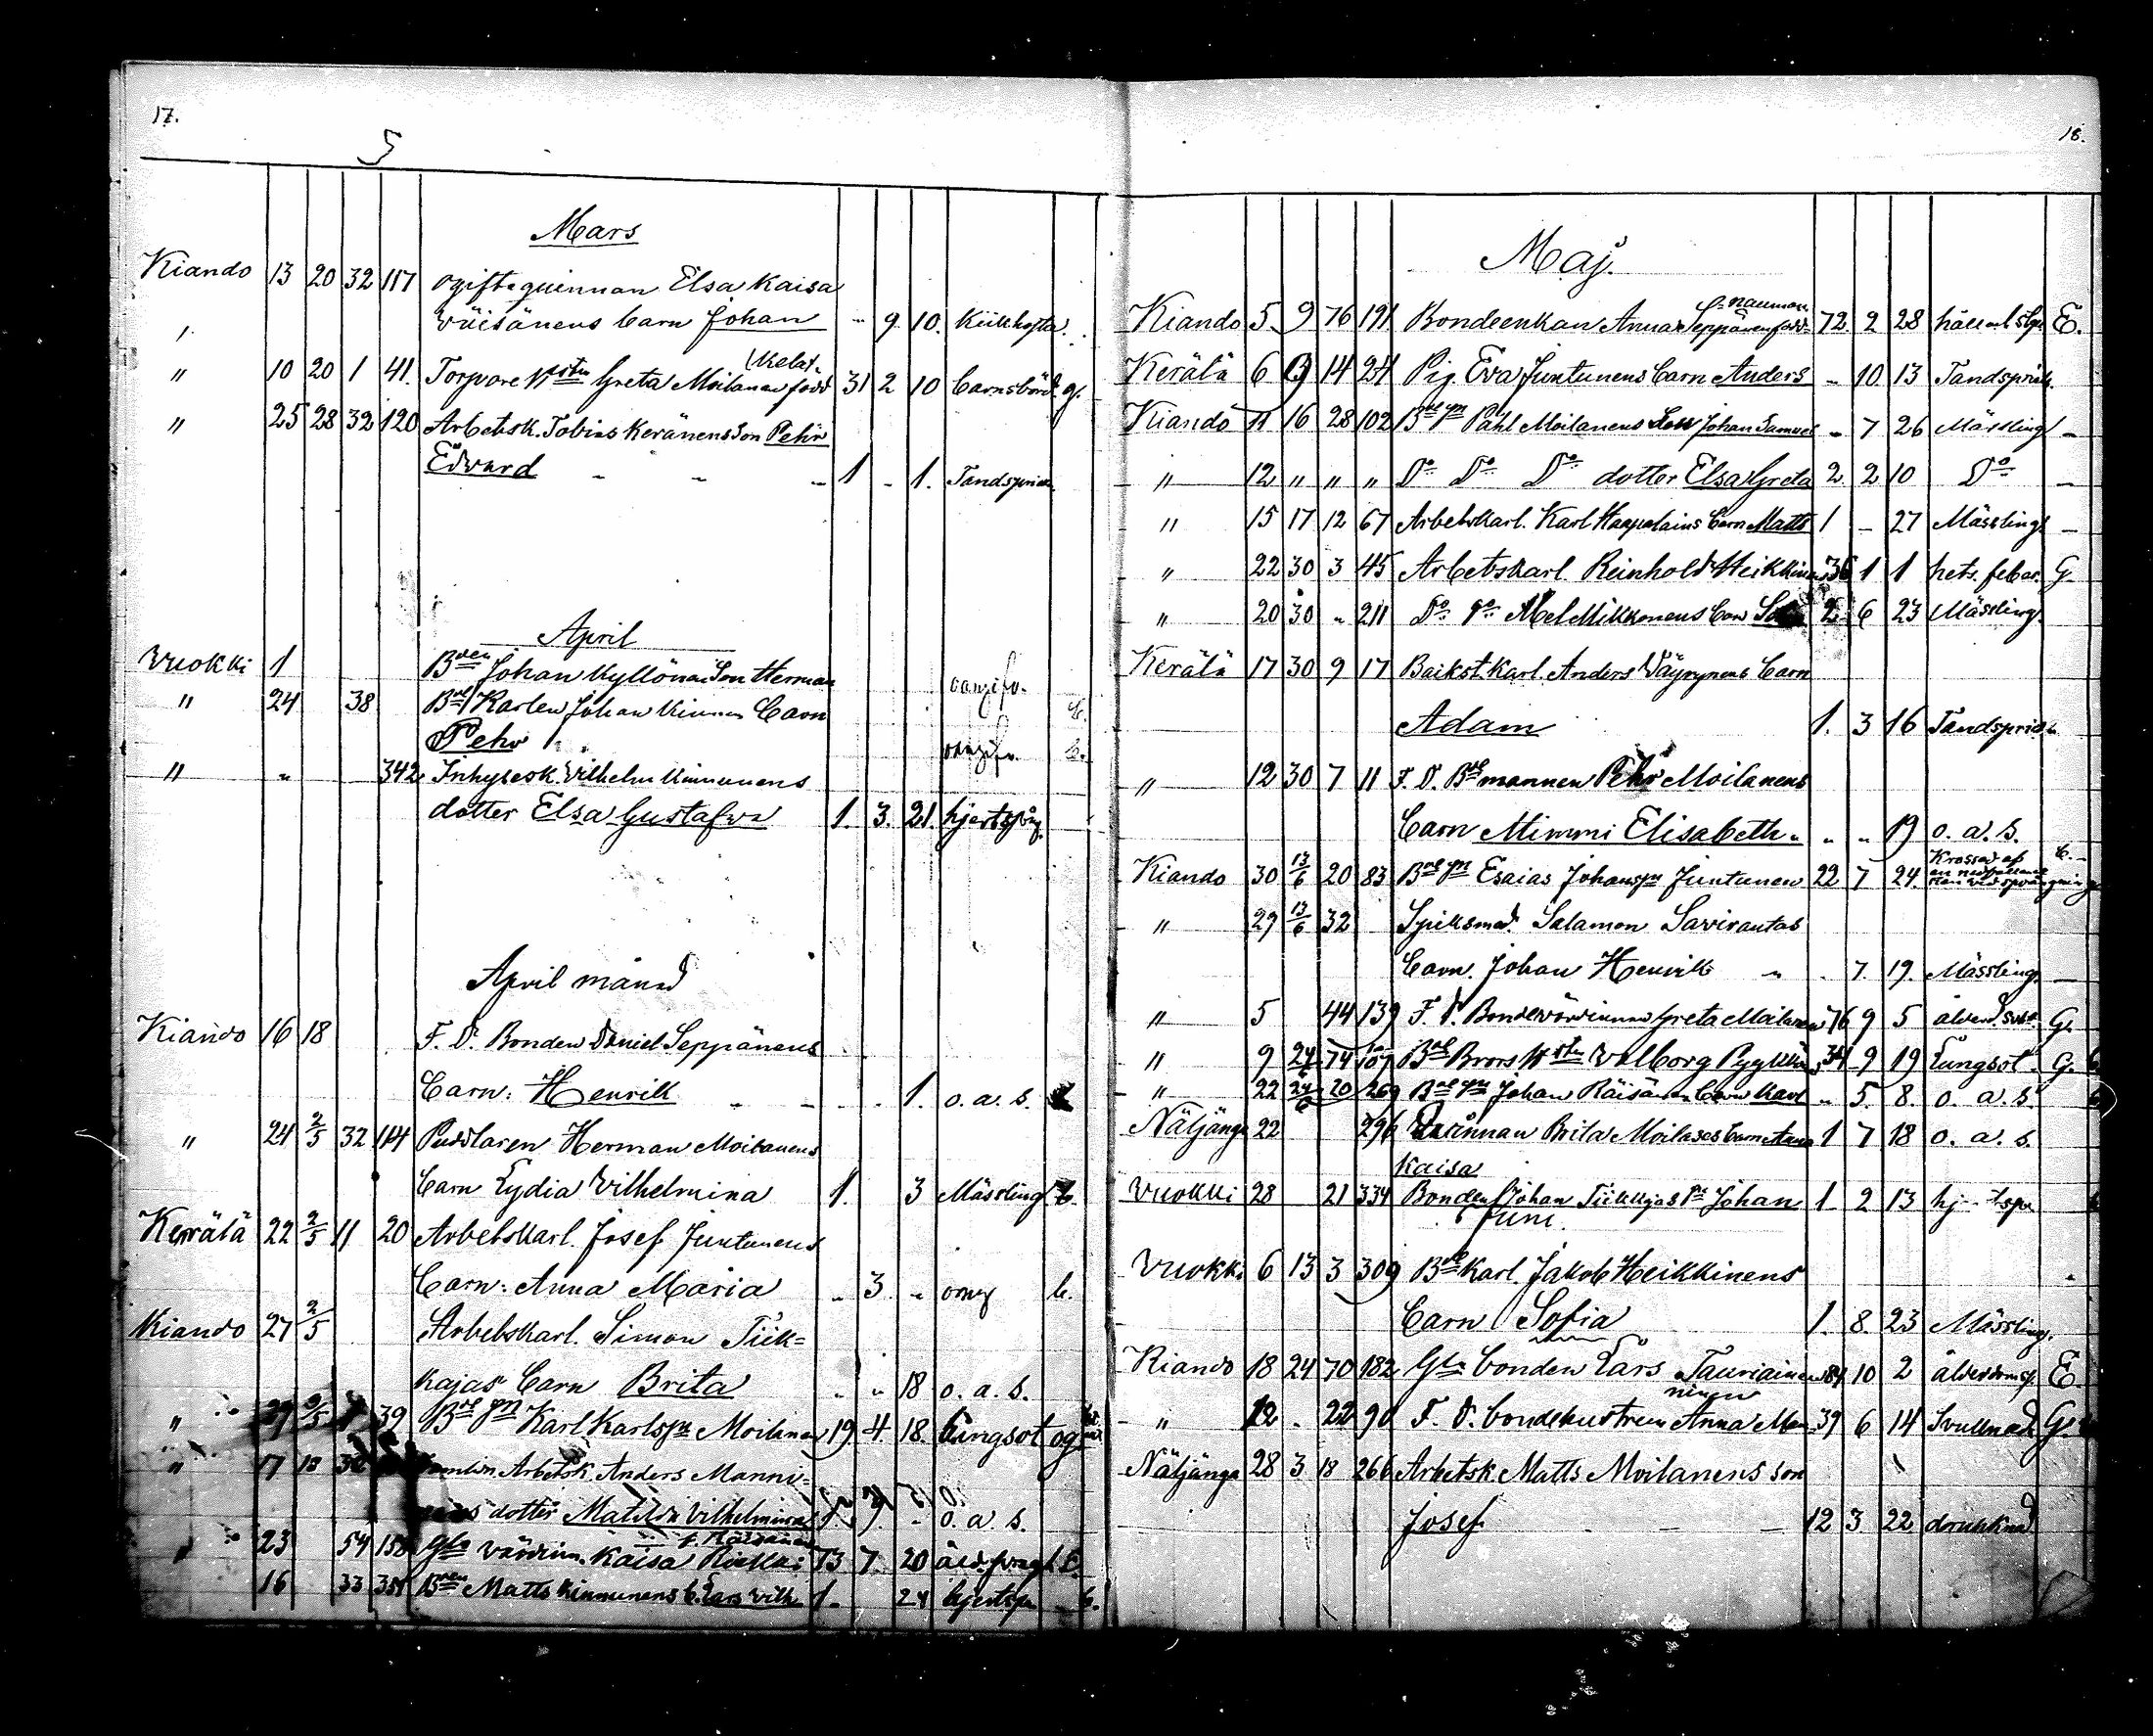 17.
5
Mars
Kiando 13 20 32 117 ogifta quinnan Elsa Kaisa
Väisänens barn Johan - 9 10. Kikhosta.
" 10 20 1 41. Torpare Hstru Greta Moilanen född 31 2 10 barnsbörd. g.
" 25 28 32 120 Arbetsk. Tobias Keränens son Pehr
Edvard - - - 1 - 1. Tandsprick.
April
Vuokki 1 Bden Johan Kyllönens Son Herman
" 24 38 Bde Karlen Johan Kinnunen barn
Pehr
" " 342 Inhysesk. Vilhelm Kinnunens
dotter Elsa Gustafva 1. 3. 21. hjertspång.
April månad
Kiando 16 18 F. D. Bonden Daniel Seppänens
barn: Henrik - - - 1. o. a. s.
" 24 2/5 32 114 Puddlaren Herman Moilanens
barn Lydia Vilhelmina 1. 3 Mässling b.
Kerälä 22 2/5 11 20 Arbetskarl. Josef Juntunens
barn: Anna Maria " 3. " b.
Kiando 27 2/5 Arbetskarl. Simon Tiik=
kajas barn Brita " " 18 o. a. s.
" 29 2/5 39 Bde sn Karl Karlsson Moilanen 19 4. 18. Lungsot og
" 17 18 32 Arbetsk. Anders Manni-
dotter Matilda Vilhelmina - o. a. s.
" 23 54 158 Gla värdin. Kaisa Riekki 73 7. 20
16 33 351 Bden Matts Kinnunens b. Lars Vilh 1 - 24 hjertspn b.
18.
Maj.
Kiando 5 9 76 191 Bondeenkan Anna Seppänen född 72. 2 28 E.
Kerälä 6 9 14 24 Pig. Eva Juntunens barn Anders - 10 13 Tandsprick.
Kiando 11 16 28 102 Bde sn Påhl Moilanens Son Johan Samuel - 7 26 Mässling -
" 12 " " " Do Do Do dotter Elsa Greta 2 2 10 Do -
" 15 17 12 67 Arbetskarl. Karl Haapalains barn Matts 1 - 27 Mässling -
" 22 30 3 45 Arbetskarl. Reinhold Heikkinen 36 1 1 hets. feber. G.
" 20 30 " 211 Do Do Mel Mikkonens barn 2 6 23 Mässling.
Kerälä 17 30 9 17 Backst. karl. Anders Väyrynens barn
Adam 1. 3 16 Tandsprick.
" 12 30 7 11 F. D. Bde mannen Pehr Moilanens
barn Mimmi Elisabeth " " " 19 o. a. s.
Kiando 30 13/6 20 83 Bde sn Esaias Johansson Juntunen 22 7 24. Krossad af
en nedfallande
sten vid sprängning
" 29 13/6 32 Spiksmed. Salamon Savirantas
barn. Johan Henrik " . 7. 19. Mässling -
" 5 44 139 F. D. Bondevärdinnan Greta Moilanen 76 9 5 G.
" 9 24 74 107 Bde Brors Hstru Valborg Pyykkönen 34 9 19 Lungsot. G.
" 22 24/6 20 269 Bde sn Johan Räisänen barn Karl " 5. 8. o. a. s.
Näljänga 22 296 Qvinnan Brita Moilases barn Anna 1 7 18 o. a. s.
Kaisa
Vuokki 28 21 334 Bonden Johan Tiikkajas Johan 1 2 13
Juni.
Vuokki 6 13 3 309 Bde Karl. Jakob Heikkinens
barn Sofia 1. 8. 23 Mässling.
Kiando 18 24 70 182 Gla bonden Lars Tauriainen 84 10 2 ålderdomsp. E.
" 12 " 22 90 F. D. bondehustrun Anna Man- 39 6 14 Svullnad G.
ninen
Näljänga 28 3 18 266 Arbetsk. Matts Moilanens son
Josef - - - 12 3 22 drunknad